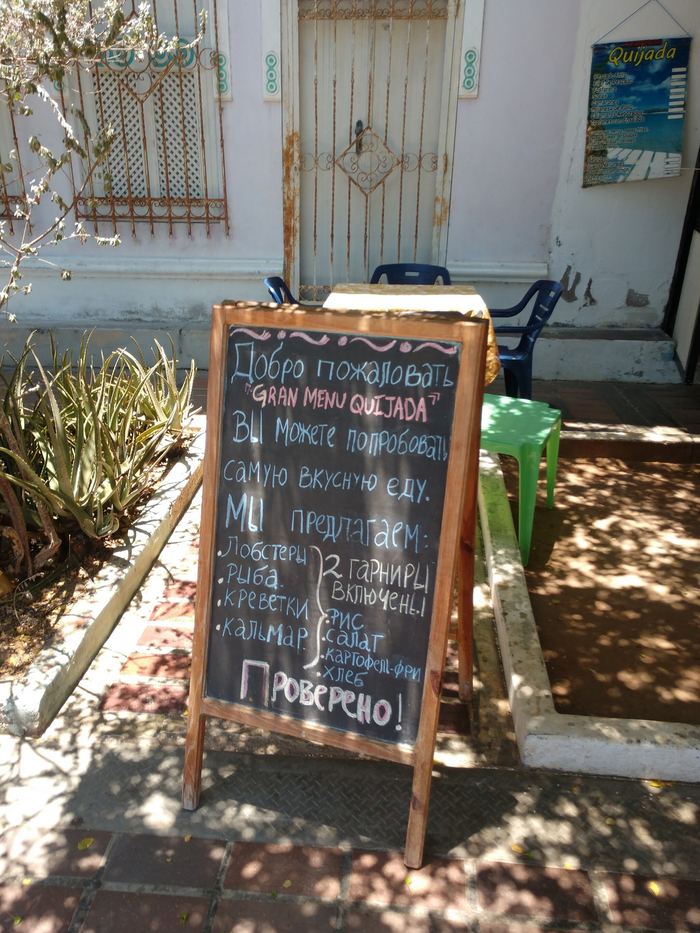 Quijada
Добро пожаловать
"GRAN MENU QUIJADA"
Вы можете попробовать
самую вкусную еду.
Мы предлагаем:
. Лобстеры
. рыба
. креветки
. кальмар
2 гарниры
включены
. рис
. салат
. картофель-фри
. хлеб
Проверено!